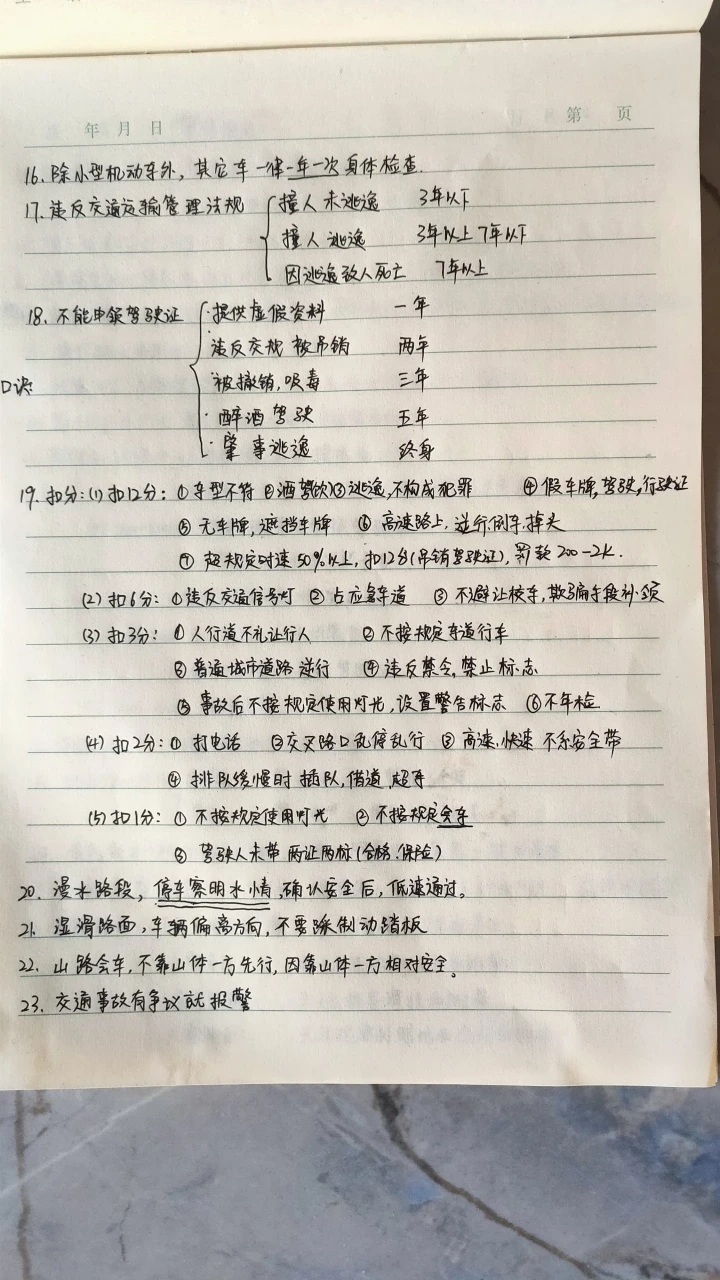 年 月 日
第 页
16. 除小型机动车外，其它车一律一年一次身体检查.
17. 违反交通运输管理法规 撞人未逃逸 3年以下
撞人逃逸 3年以上7年以下
因逃逸致人死亡 7年以上
18. 不能申领驾驶证 ·提供虚假资料 一年
违反交规 被吊销 两年
口诀: 被撤销,吸毒 三年
·醉酒驾驶 五年
·肇事逃逸 终身
19. 扣分: (1) 扣12分: ①车型不符 ②酒驾(饮) ③逃逸,不构成犯罪 ④假车牌,驾驶,行驶证
⑤ 无车牌,遮挡车牌 ⑥ 高速路上,逆行.倒车.掉头
⑦ 超规定时速50%以上,扣12分(吊销驾驶证),罚款200-2k.
(2) 扣6分: ①违反交通信号灯 ② 占应急车道 ③ 不避让校车,欺骗手段补.领
(3) 扣3分: ① 人行道不礼让行人 ② 不按规定车道行车
③ 普通城市道路逆行 ④ 违反禁令,禁止标志
⑤ 事故后不按规定使用灯光,设置警告标志 ⑥不年检
(4) 扣2分: ① 打电话 ②交叉路口乱停乱行 ③ 高速.快速 不系安全带
④ 排队缓慢时 插队,借道,超车
(5) 扣1分: ① 不按规定使用灯光 ② 不按规定会车
③ 驾驶人未带两证两标(合格.保险)
20. 漫水路段，停车察明水情,确认安全后，低速通过。
21. 湿滑路面,车辆偏离方向,不要踩制动踏板
22. 山路会车,不靠山体一方先行,因靠山体一方相对安全。
23. 交通事故有争议就报警